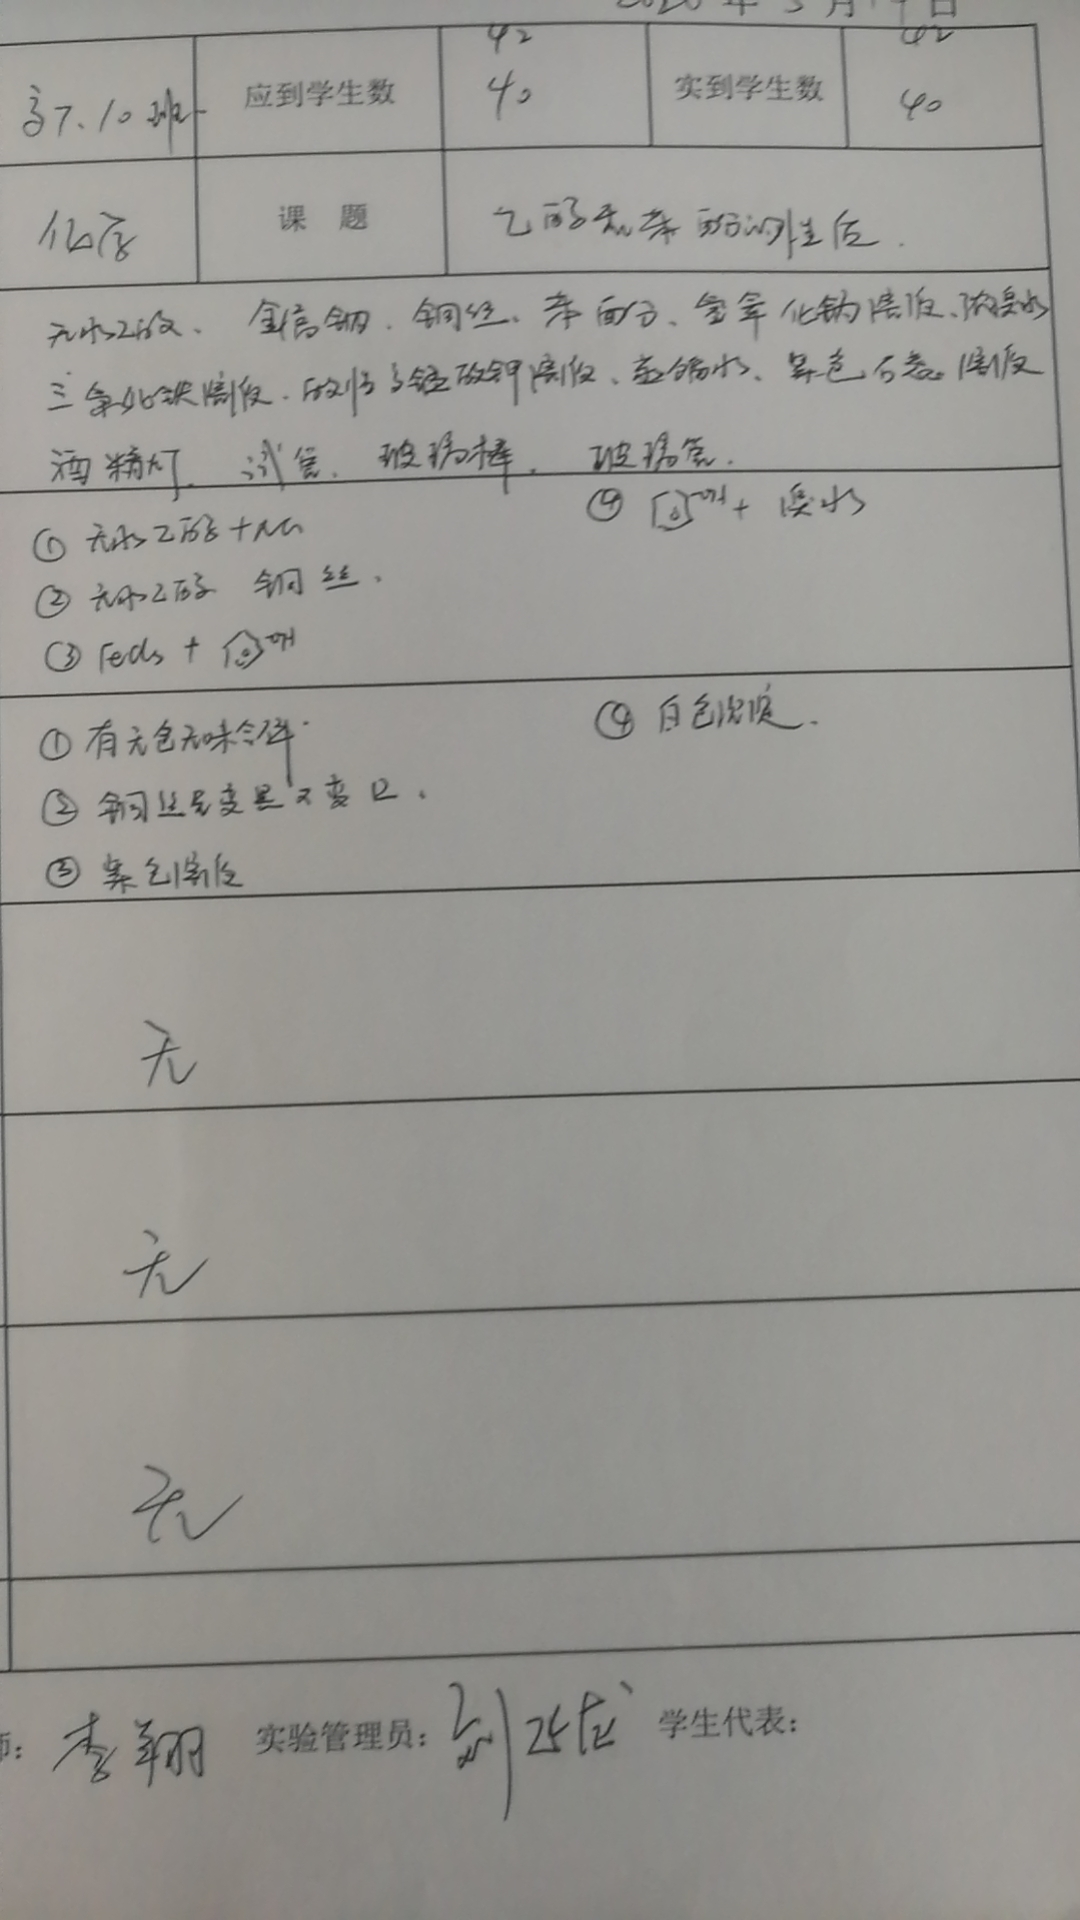 年3月19日
42 42
高7.10班 应到学生数 40 实到学生数 40
化学 课 题 乙醇和苯酚的性质.
无水乙酸、金属钠、铜丝、苯酚、氢氧化钠溶液、浓溴水
三氯化铁溶液、酸性高锰酸钾溶液、蒸馏水、紫色石蕊溶液
酒精灯、试管、玻璃棒、玻璃管.
① 无水乙醇+Na ④ OH + 溴水
② 无水乙醇 铜丝.
③ FeCl3 + OH
① 有无色无味气体 ④ 白色沉淀.
② 铜丝先变黑又变红.
③ 紫色溶液
无
无
无
师: 李翔 实验管理员: 刘 学生代表: